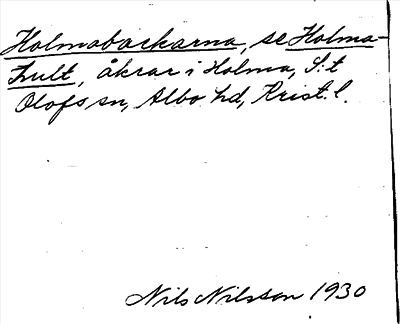 Holmabackarna, se Holma-
hult, åkrar i Holma, S:t
Olofs sn, Albo hd, Krist. l.
Nils Nilsson 1930